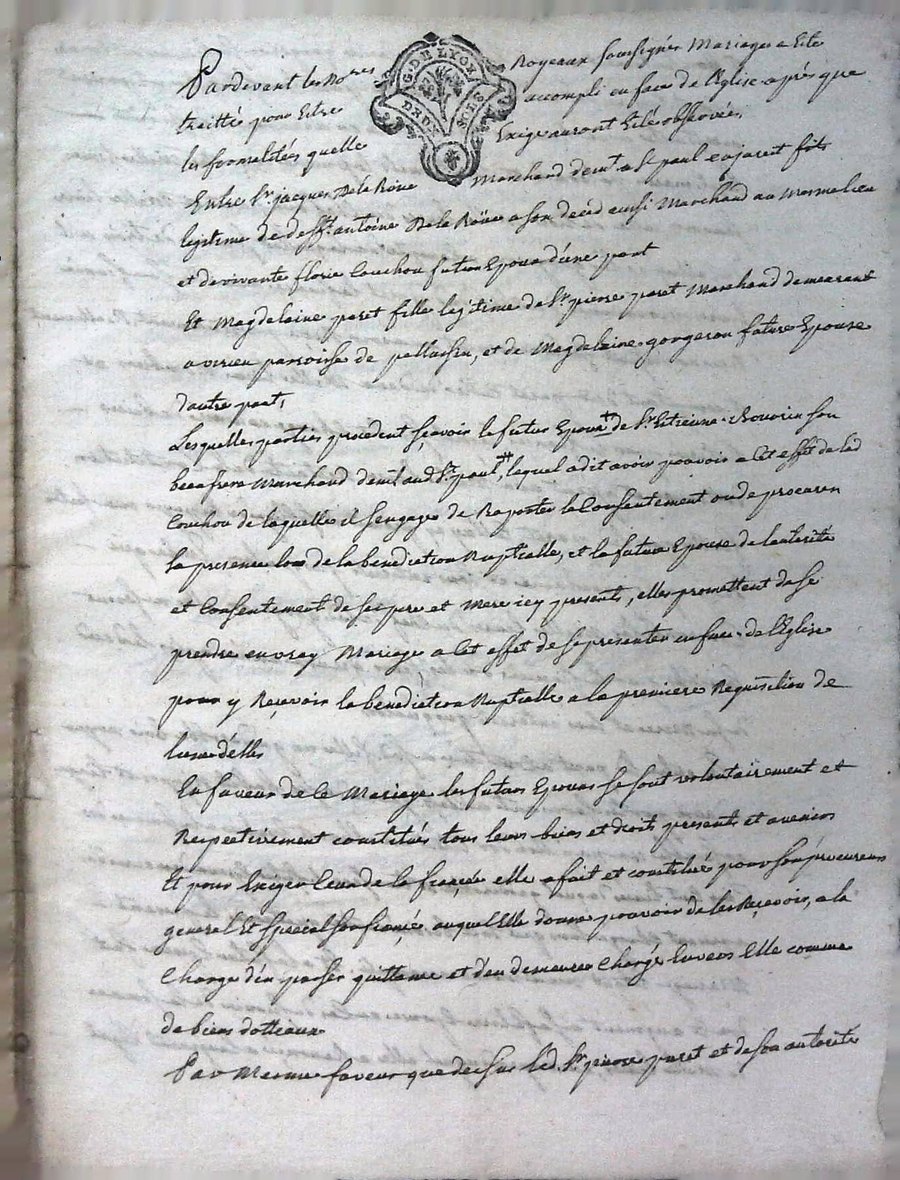 G. DE LYON
DEUX SOLS
Pardevant les No.res Royeaux soussignés Mariage a Eté
traitté pour Etre accompli en face de l'Eglise après que
les formalités quelle Exige auront Eté observées
Entre Sr. jacques Dela Roüe Marchand demt. a St. paul enjarest fils
legitime de defft. antoine Dela Roüe a son deced aussi Marchand au mesme lieu
et de vivante florie Couchou futur Epoux d'une part
Et Magdelaine paret fille legitime de Sr. pierre paret Marchand demeurant
a virieu parroisse de pellussin, et de Magdelaine gorgeron future Epouse
d'autre part,
Lesquelles parties procedent sçavoir le futur Epoux de Sr. Estienne Rouvin son
beaufrere Marchand demt. aud St. paul, lequel a dit avoir pouvoir a Cet effet de lad
Couchou de laquelle il s'engage de Raporter le Consentement ou de procurer
sa presence lors de la benediction Nuptialle, et la future Epouse de l'autorité
et Consentement de ses pere et Mere icy presents, elles promettent de se
prendre en vray Mariage a Cet effet de se presenter en face de l'Eglise
pour y Reçevoir la benediction Nuptialle a la premiere Requisition de
l'une d'elles
En faveur de Ce Mariage les futurs Epoux se sont volontairement et
Respectivement constitués tous leurs biens et droits presents et avenirs
Et pour Exiger Ceux de la fiancée elle a fait et constitué pour son procureur
general Et special son fiancé, auquel Elle donne pouvoir de les Reçevoir, a la
Charge d'en passer quittance et d'en demeurer Chargé Envers Elle comme
de biens dotteaux
Par Mesme faveur que dessus led. Sr. pierre paret et de son autorité